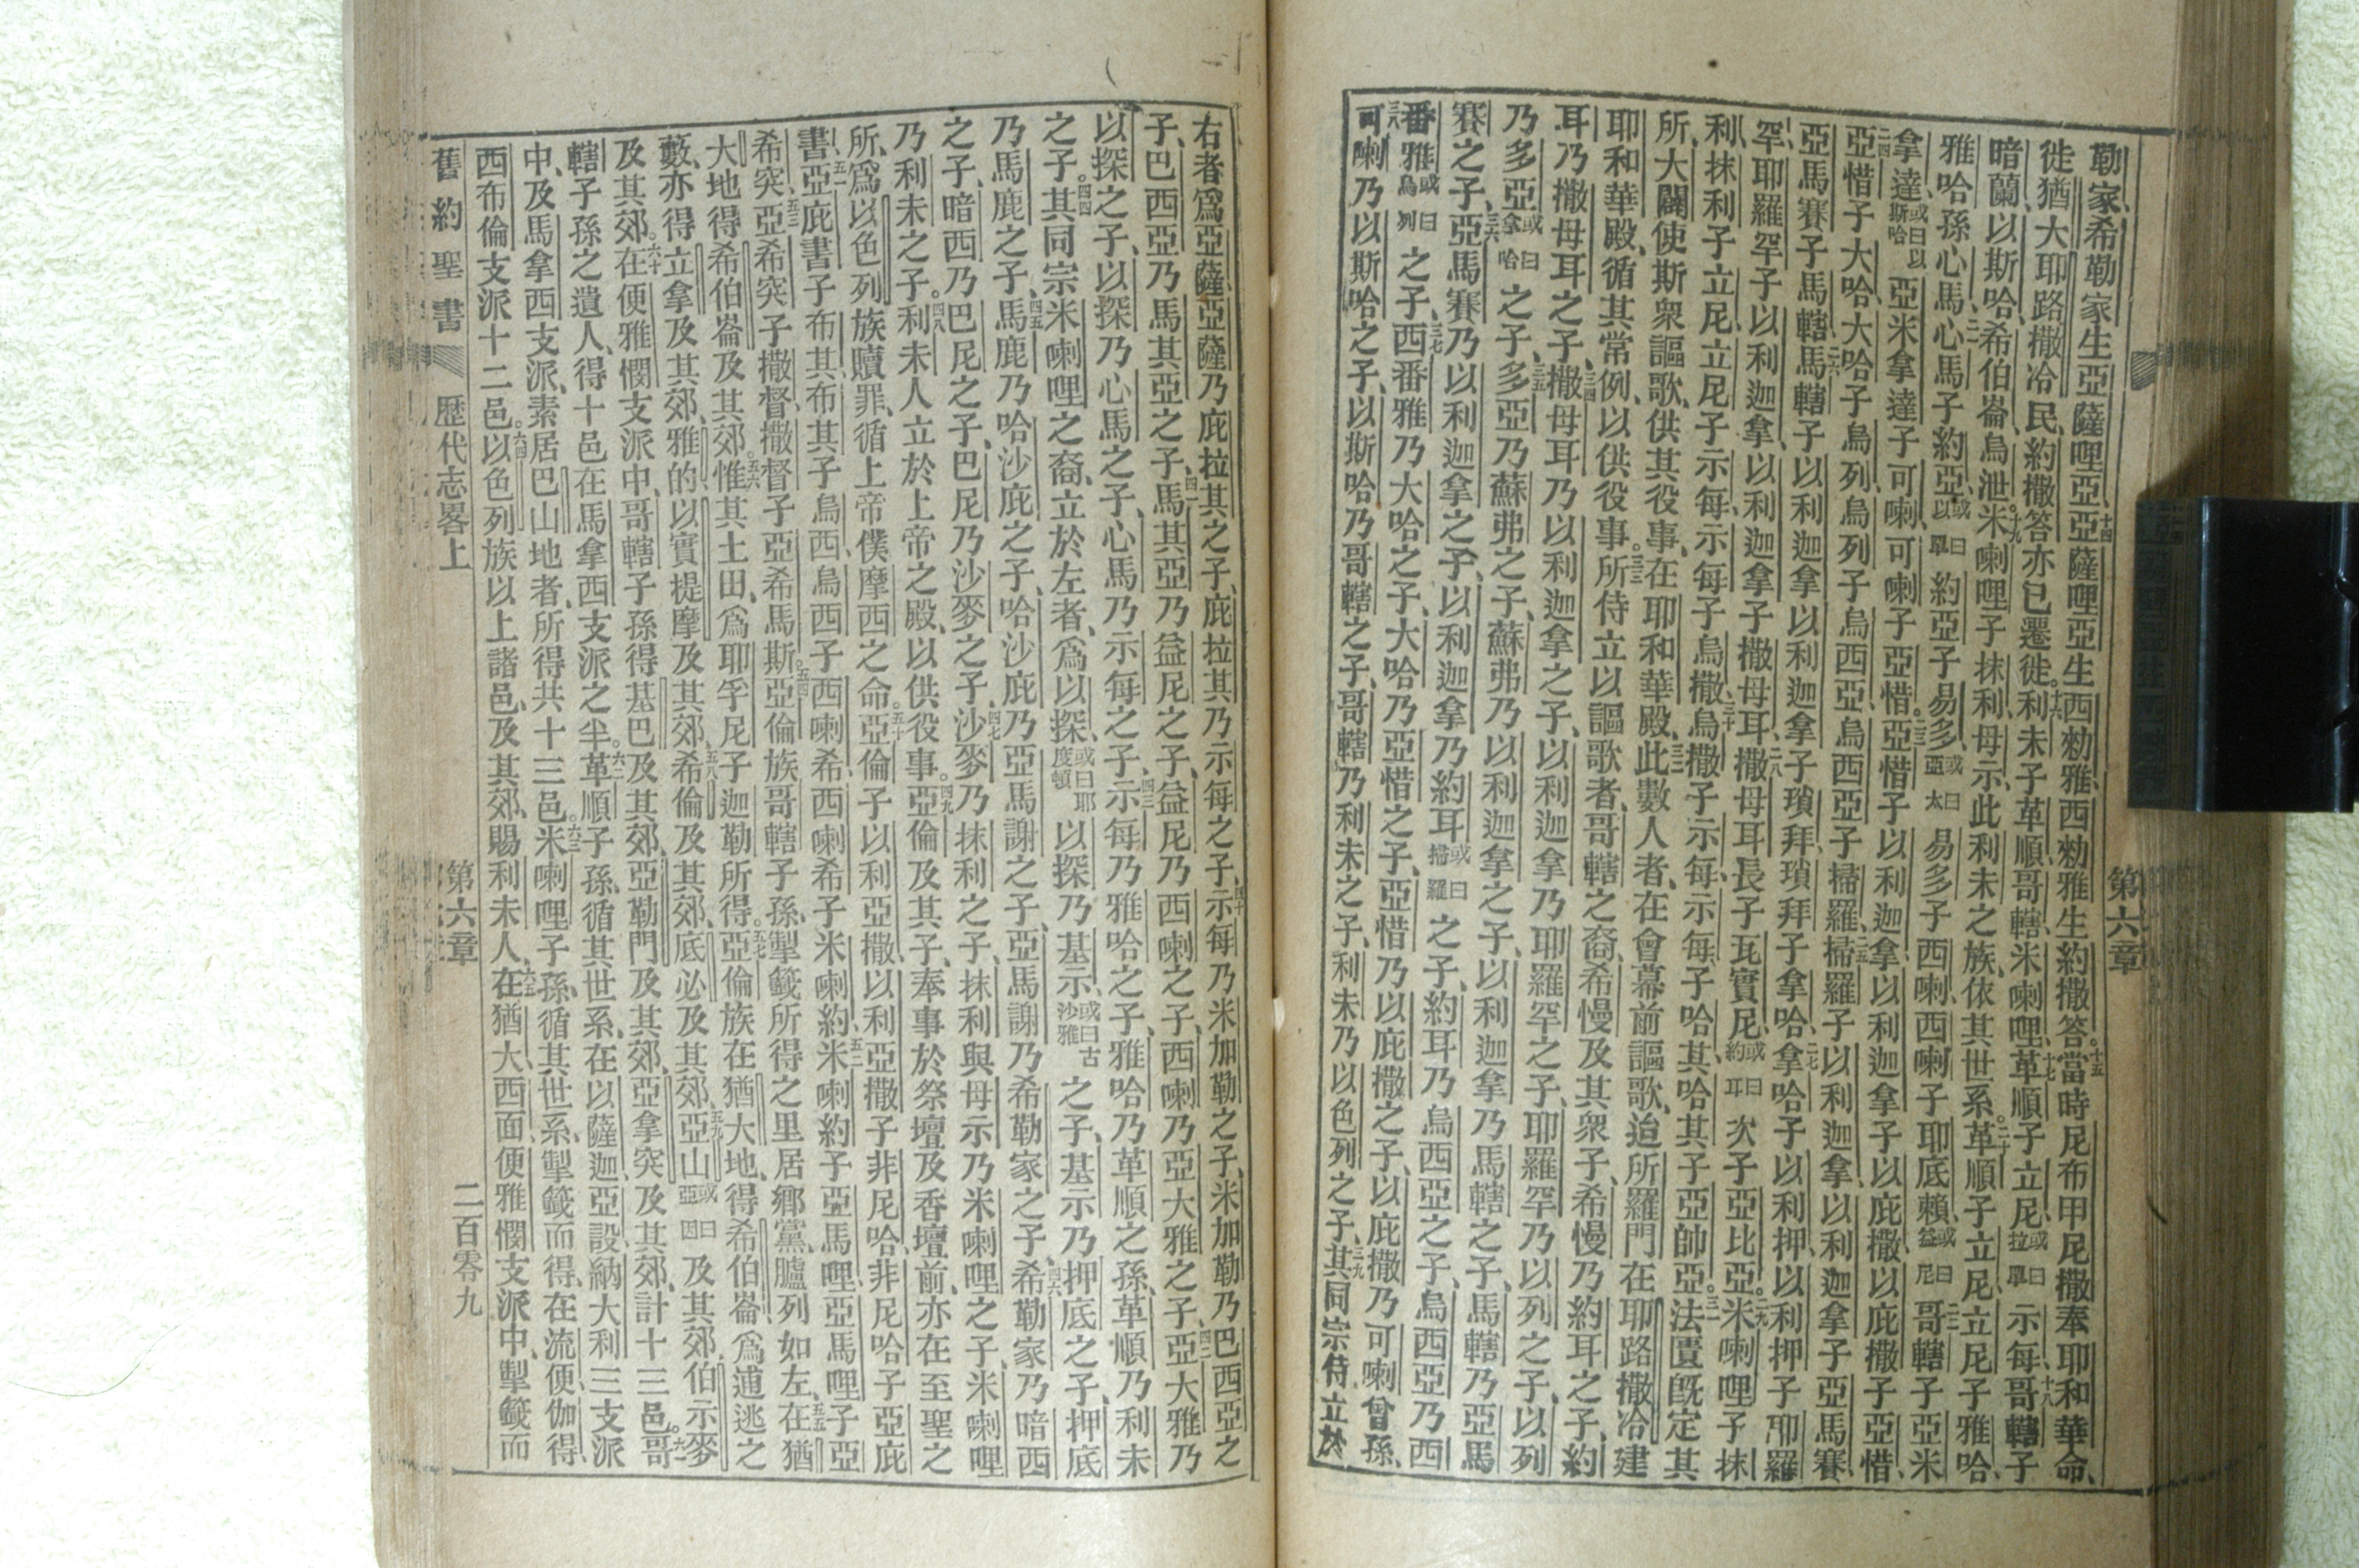 第六章
勒家、希勒家生亞薩哩亞、十四亞薩哩亞生西勑雅、西勑雅生約撒答。十五當時尼布甲尼撒奉耶和華命、
徙猶大耶路撒冷民、約撒答亦已遷徙。十六利未子革順、哥轄、米喇哩、十七革順子立尼、或曰拉單示每、十八哥轄子
暗蘭、以斯哈、希伯崙、烏泄。十九米喇哩子抹利、母示、此利未之族、依其世系。二十革順子立尼、立尼子雅哈、
雅哈孫心馬、二一心馬子約亞、或曰以單約亞子易多、或曰亞太易多子西喇、西喇子耶底賴、或曰益尼二二哥轄子亞米
拿達、或曰以斯哈亞米拿達子可喇、可喇子亞惜。二三亞惜子以利迦拿、以利迦拿子以庇撒、以庇撒子亞惜、
二四亞惜子大哈、大哈子烏列、烏列子烏西亞、烏西亞子掃羅、二五掃羅子以利迦拿、以利迦拿子亞馬賽、
亞馬賽子馬轄、二六馬轄子以利迦拿、以利迦拿子瑣拜、瑣拜子拿哈、二七拿哈子以利押、以利押子耶羅
罕、耶羅罕子以利迦拿、以利迦拿子撒母耳、二八撒母耳長子瓦實尼、或曰約耳次子亞比亞。二九米喇哩子抹
利、抹利子立尼、立尼子示每、示每子烏撒、三十烏撒子示每、示每子哈其、哈其子亞帥亞。三一法匱旣定其
所、大闢使斯衆謳歌、供其役事、在耶和華殿、三二此數人者、在會幕前謳歌、迨所羅門在耶路撒冷建
耶和華殿、循其常例、以供役事。三三所侍立以謳歌者、哥轄之裔、希慢及其衆子、希慢乃約耳之子、約
耳乃撒母耳之子、三四撒母耳乃以利迦拿之子、以利迦拿乃耶羅罕之子、耶羅罕乃以列之子、以列
乃多亞或曰拿哈之子、三五多亞乃蘇弗之子、蘇弗乃以利迦拿之子、以利迦拿乃馬轄之子、馬轄乃亞馬
賽之子、三六亞馬賽乃以利迦拿之子、以利迦拿乃約耳或曰掃羅之子、約耳乃烏西亞之子、烏西亞乃西
番雅或曰烏列之子、三七西番雅乃大哈之子、大哈乃亞惜之子、亞惜乃以庇撒之子、以庇撒乃可喇曾孫、
三八可喇乃以斯哈之子、以斯哈乃哥轄之子、哥轄乃利未之子、利未乃以色列之子、三九其同宗侍立於
右者爲亞薩、亞薩乃庇拉其之子、庇拉其乃示每之子、四十示每乃米加勒之子、米加勒乃巴西亞之
子、巴西亞乃馬其亞之子、四一馬其亞乃益尼之子、益尼乃西喇之子、西喇乃亞大雅之子、四二亞大雅乃
以探之子、以探乃心馬之子、心馬乃示每之子、四三示每乃雅哈之子、雅哈乃革順之孫、革順乃利未
之子。四四其同宗米喇哩之裔、立於左者、爲以探、或曰耶度頓以探乃基示、或曰古沙雅之子、基示乃押底之子、押底
乃馬鹿之子、四五馬鹿乃哈沙庇之子、哈沙庇乃亞馬謝之子、亞馬謝乃希勒家之子、四六希勒家乃暗西
之子、暗西乃巴尼之子、巴尼乃沙麥之子、四七沙麥乃抹利之子、抹利與母示乃米喇哩之子、米喇哩
乃利未之子。四八利未人立於上帝之殿、以供役事。四九亞倫及其子、奉事於祭壇及香壇前、亦在至聖之
所、爲以色列族贖罪、循上帝僕摩西之命。五十亞倫子以利亞撒、以利亞撒子非尼哈、非尼哈子亞庇
書、五一亞庇書子布其、布其子烏西、烏西子西喇希、西喇希子米喇約、五二米喇約子亞馬哩、亞馬哩子亞
希突、五三亞希突子撒督、撒督子亞希馬斯。五四亞倫族哥轄子孫、掣籤所得之里居鄉黨、臚列如左、五五在猶
大地得希伯崙及其郊。五六惟其土田、爲耶孚尼子迦勒所得。五七亞倫族在猶大地、得希伯崙爲逋逃之
藪、亦得立拿及其郊、雅的、以實提摩及其郊、五八希倫及其郊、底必及其郊、五九亞山或曰亞因及其郊、伯示麥
及其郊。六十在便雅憫支派中、哥轄子孫得基巴及其郊、亞勒門及其郊、亞拿突及其郊、計十三邑。六一哥
轄子孫之遺人、得十邑在馬拿西支派之半。六二革順子孫、循其世系、在以薩迦、亞設、納大利三支派
中、及馬拿西支派、素居巴山地者、所得共十三邑。六三米喇哩子孫、循其世系、掣籤而得、在流便、伽得、
西布倫支派十二邑。六四以色列族以上諸邑、及其郊、賜利未人、六五在猶大、西面、便雅憫支派中、掣籤而
舊約聖書 歷代志畧上 第六章 二百零九